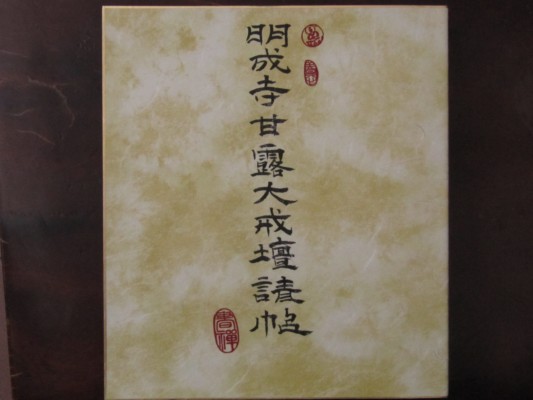 明成寺甘露大戒壇請帖
書禪